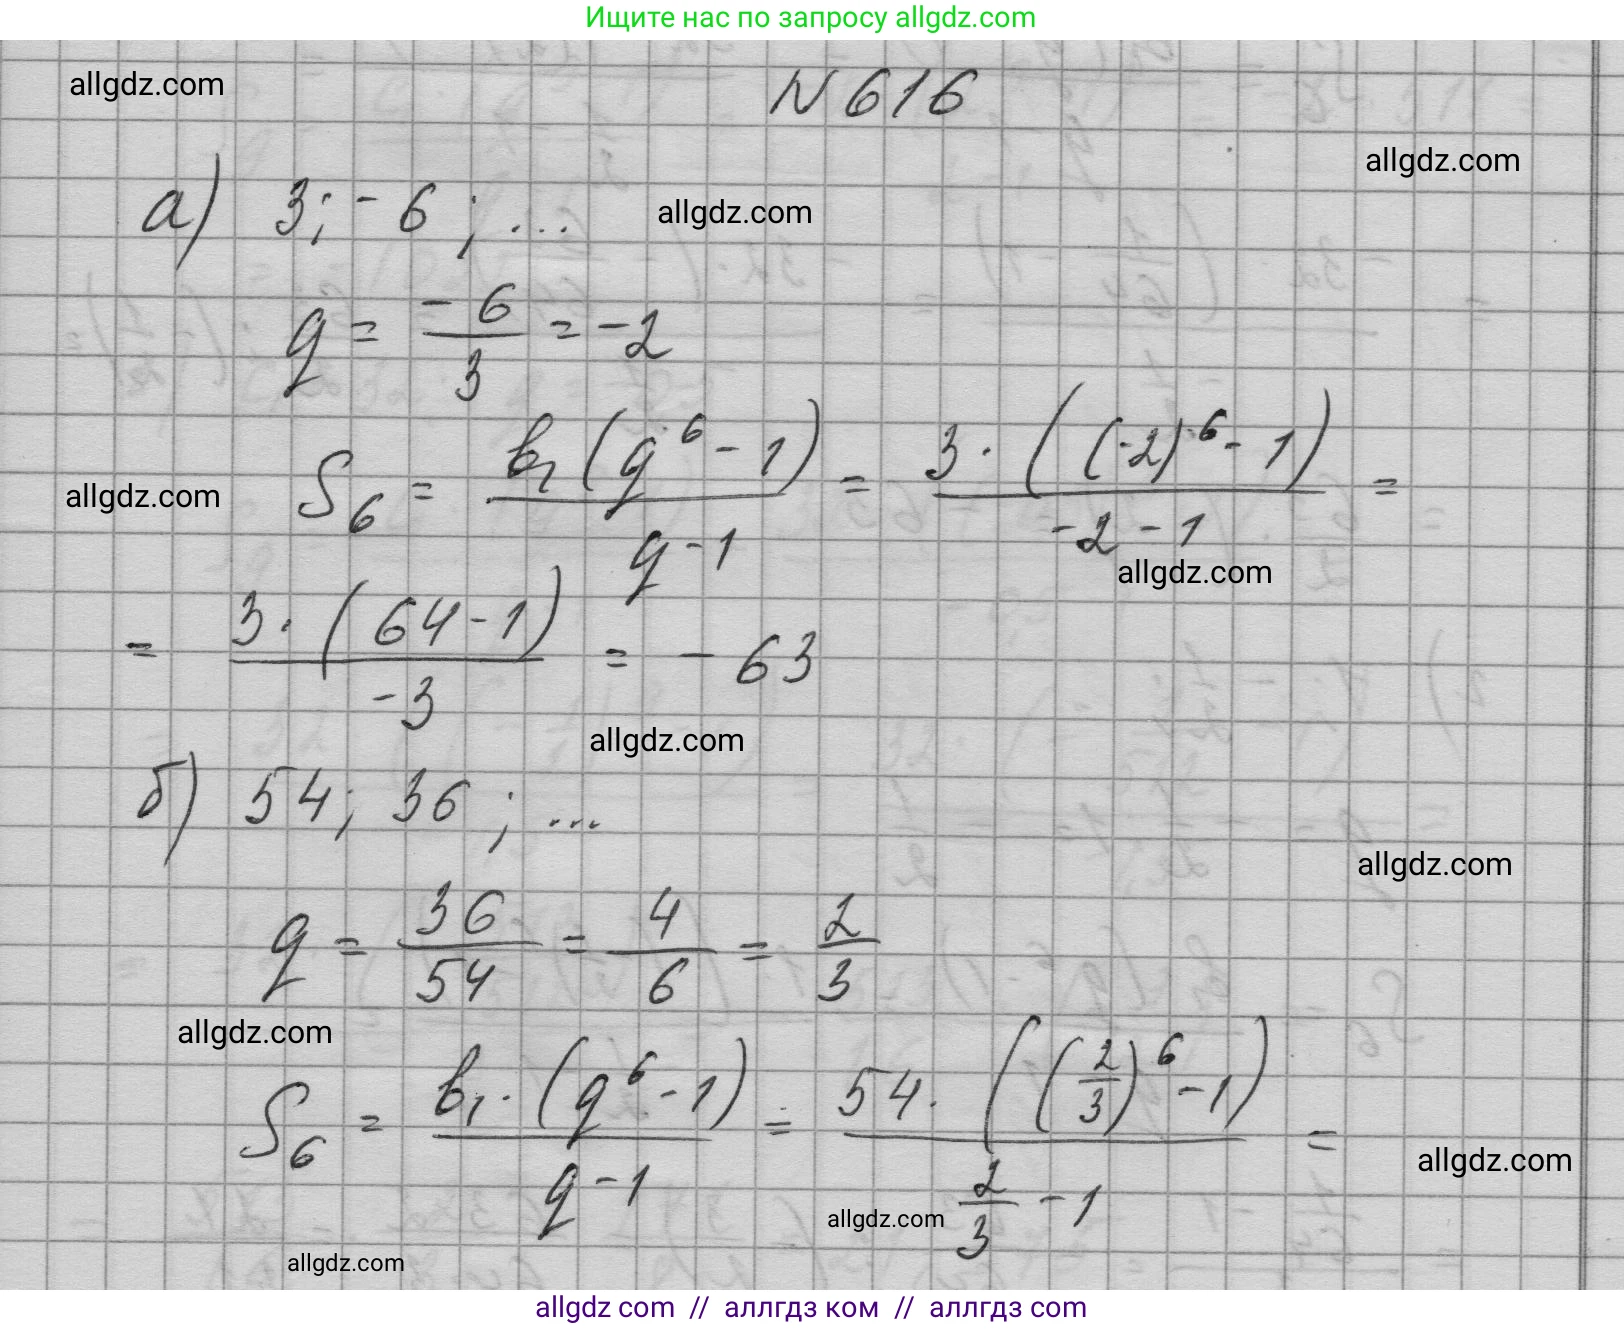 Ищите нас по запросу allgdz.com
allgdz.com
N 616
allgdz.com
а) 3; -6; ...
allgdz.com
q = -6/3 = -2
S₆ = b₁(q⁶ - 1)/(q - 1) = 3·((-2)⁶ - 1)/(-2 - 1) =
allgdz.com
allgdz.com
= 3·(64 - 1)/(-3) = -63
allgdz.com
б) 54; 36; ...
allgdz.com
q = 36/54 = 4/6 = 2/3
allgdz.com
S₆ = b₁·(q⁶ - 1)/(q - 1) = 54·((2/3)⁶ - 1)/(2/3 - 1) =
allgdz.com
allgdz.com
allgdz.com
allgdz com // аллгдз ком // аллгдз com